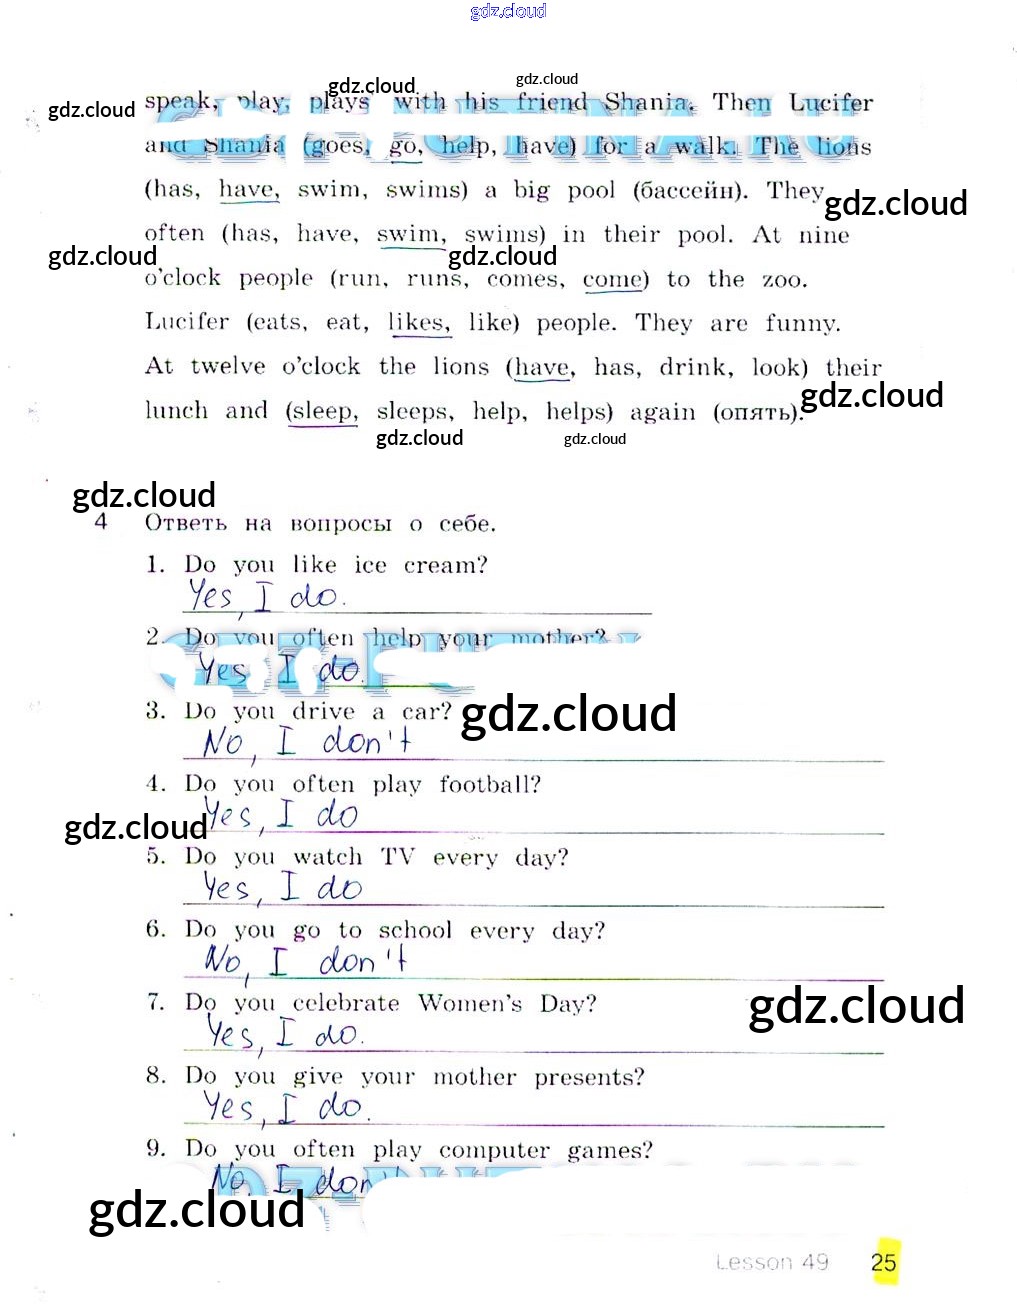 gdz.cloud
gdz.cloud
gdz.cloud
speak, play, plays with his friend Shania. Then Lucifer
gdz.cloud
and Shania (goes, go, help, have) for a walk. The lions
(has, have, swim, swims) a big pool (бассейн). They
gdz.cloud
often (has, have, swim, swims) in their pool. At nine
gdz.cloud
gdz.cloud
o'clock people (run, runs, comes, come) to the zoo.
Lucifer (eats, eat, likes, like) people. They are funny.
At twelve o'clock the lions (have, has, drink, look) their
gdz.cloud
lunch and (sleep, sleeps, help, helps) again (опять).
gdz.cloud
gdz.cloud
gdz.cloud
4 Ответь на вопросы о себе.
1. Do you like ice cream?
Yes, I do.
2. Do you often help your mother?
Yes I do.
3. Do you drive a car?
gdz.cloud
No, I don't
4. Do you often play football?
Yes, I do
gdz.cloud
5. Do you watch TV every day?
Yes, I do
6. Do you go to school every day?
No, I don't
7. Do you celebrate Women's Day?
gdz.cloud
Yes, I do.
8. Do you give your mother presents?
Yes, I do.
9. Do you often play computer games?
No, I don'
gdz.cloud
Lesson 49 25